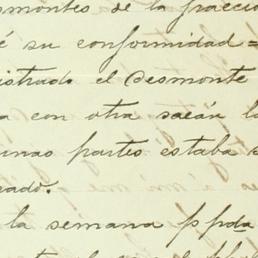 smontes de la fracció
é su conformidad =
istrado el Desmonte
a con otra sacán lo
unas partes estaba s
eado.
la semana ppda